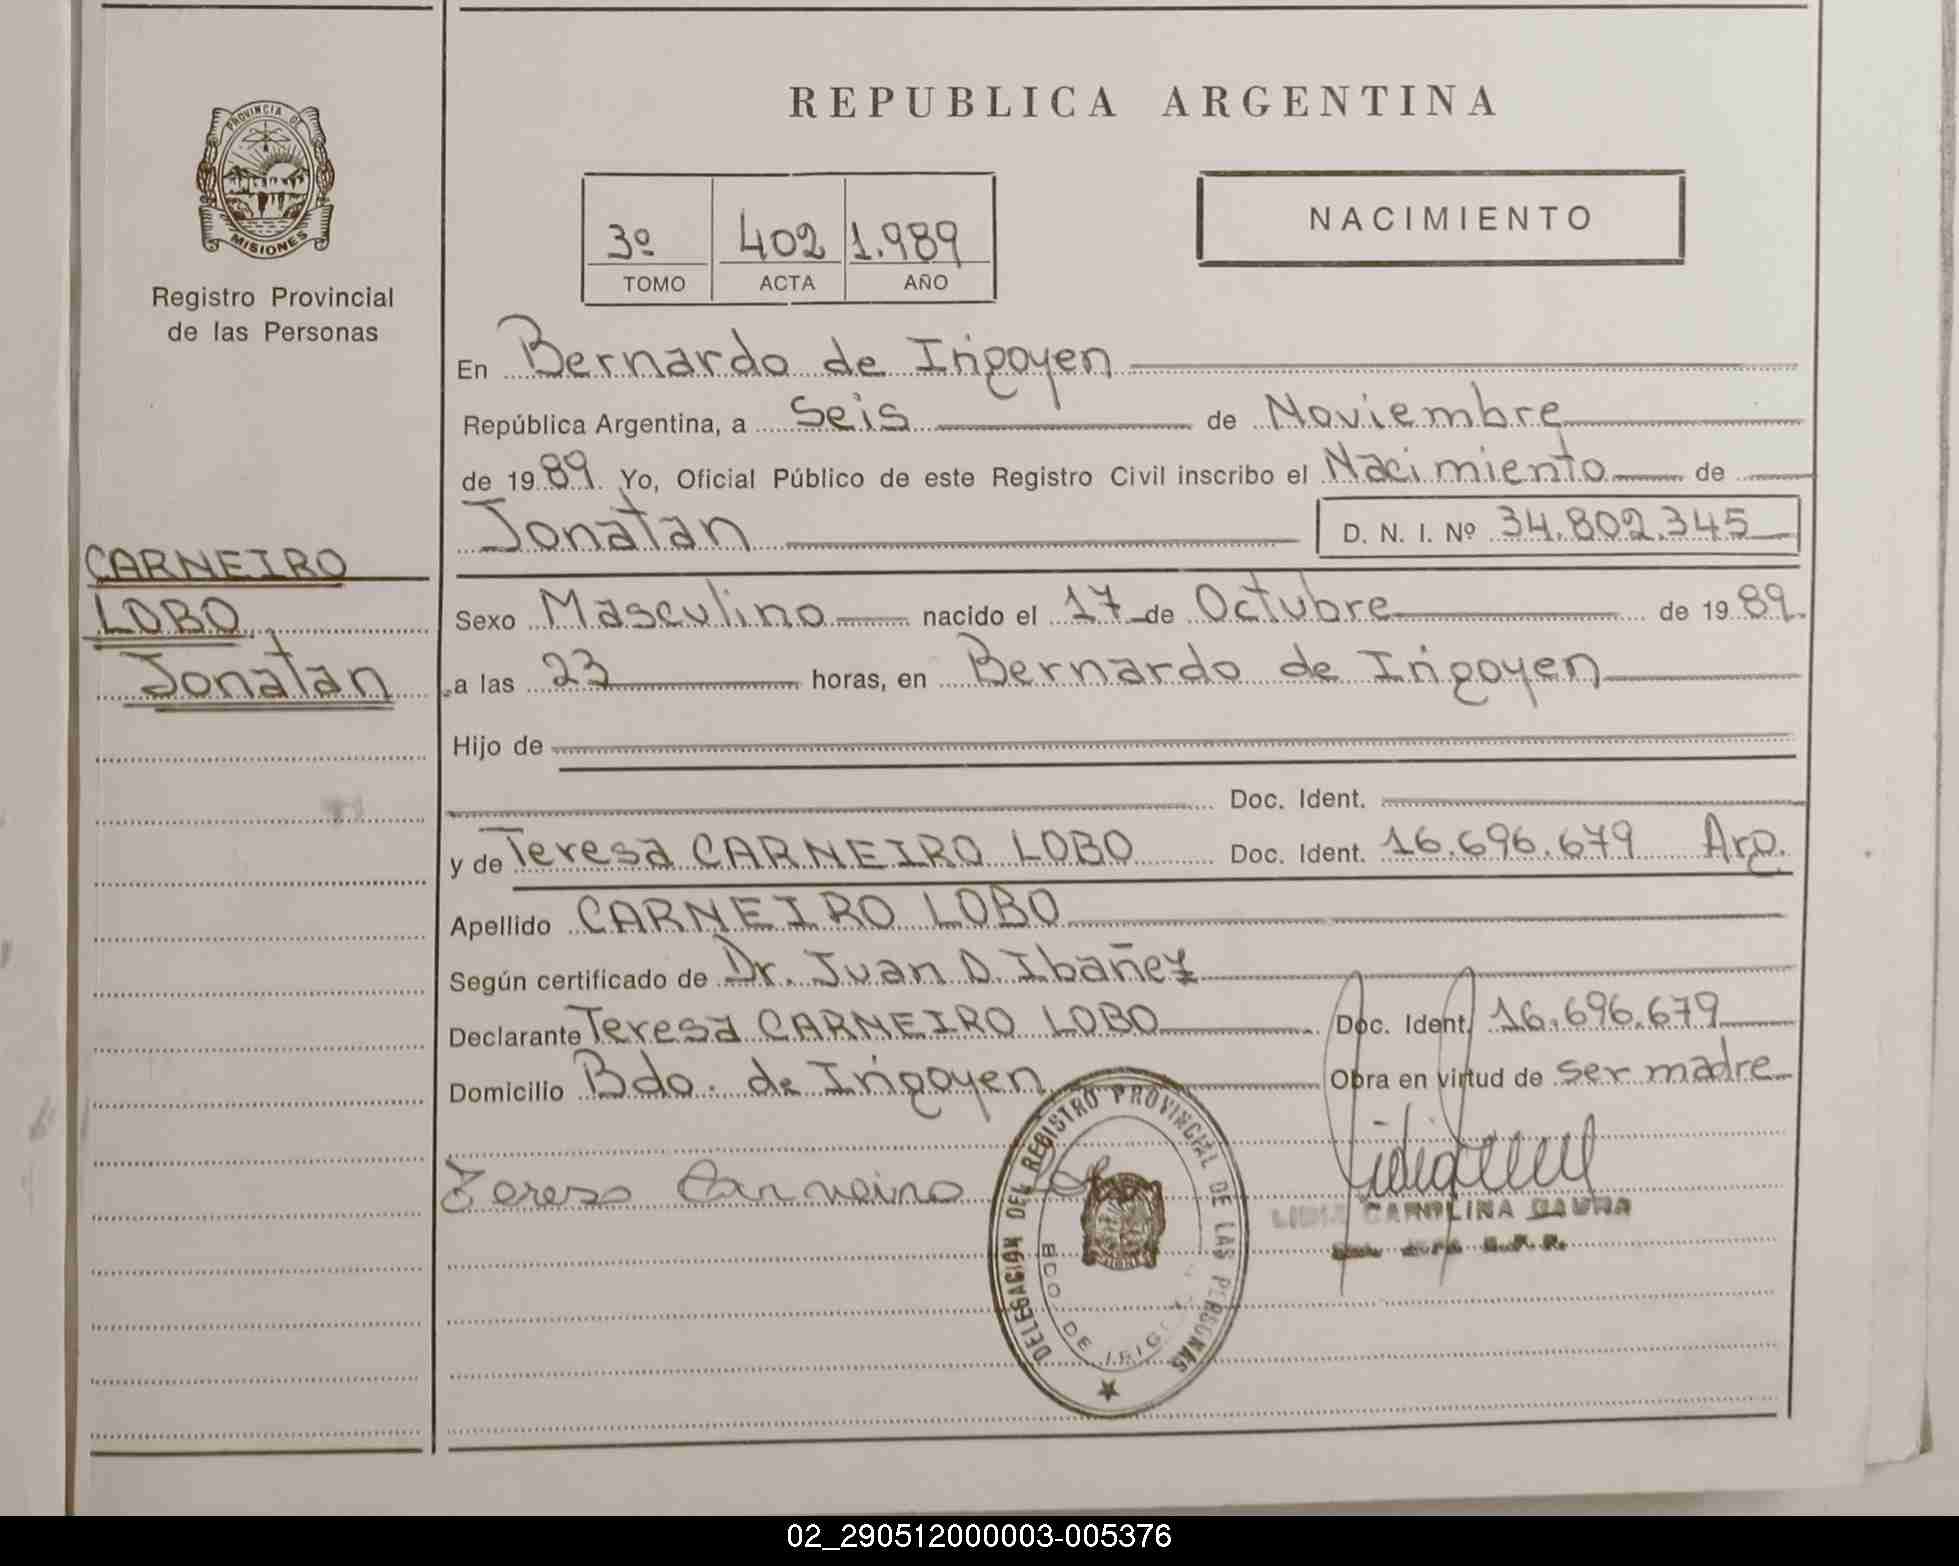 REPUBLICA ARGENTINA
PROVINCIA DE
MISIONES
Registro Provincial
de las Personas
3º 402 1.989
TOMO ACTA AÑO
NACIMIENTO
En Bernardo de Irigoyen
República Argentina, a Seis de Noviembre
de 1989 Yo, Oficial Público de este Registro Civil inscribo el Nacimiento de
Jonatan D. N. I. Nº 34.802.345
CARNEIRO
LOBO
Jonatan
Sexo Masculino nacido el 17 de Octubre de 1989.
a las 23 horas, en Bernardo de Irigoyen
Hijo de
Doc. Ident.
y de Teresa CARNEIRO LOBO Doc. Ident. 16.696.679 Arg.
Apellido CARNEIRO LOBO
Según certificado de Dr. Juan D. Ibañez
Declarante Teresa CARNEIRO LOBO Doc. Ident. 16.696.679
Domicilio Bdo. de Irigoyen Obra en virtud de ser madre
Teresa Carneiro
DELEGASIÓN DEL REGISTRO PROVINCIAL DE LAS PERSONAS
BDO DE IRIGOY
CAROLINA
02_290512000003-005376